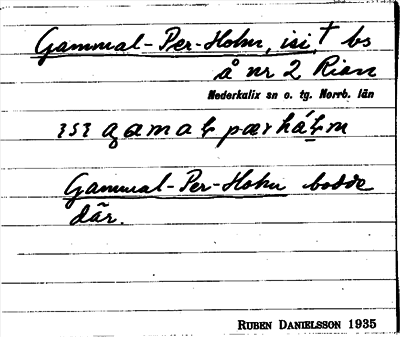 Gammal-Per-Holm, isi, † bs
å nr 2 Rian
Nederkalix sn o. tg. Norrb. län
Gammal-Per-Holm bodde
där.
RUBEN DANIELSSON 1935